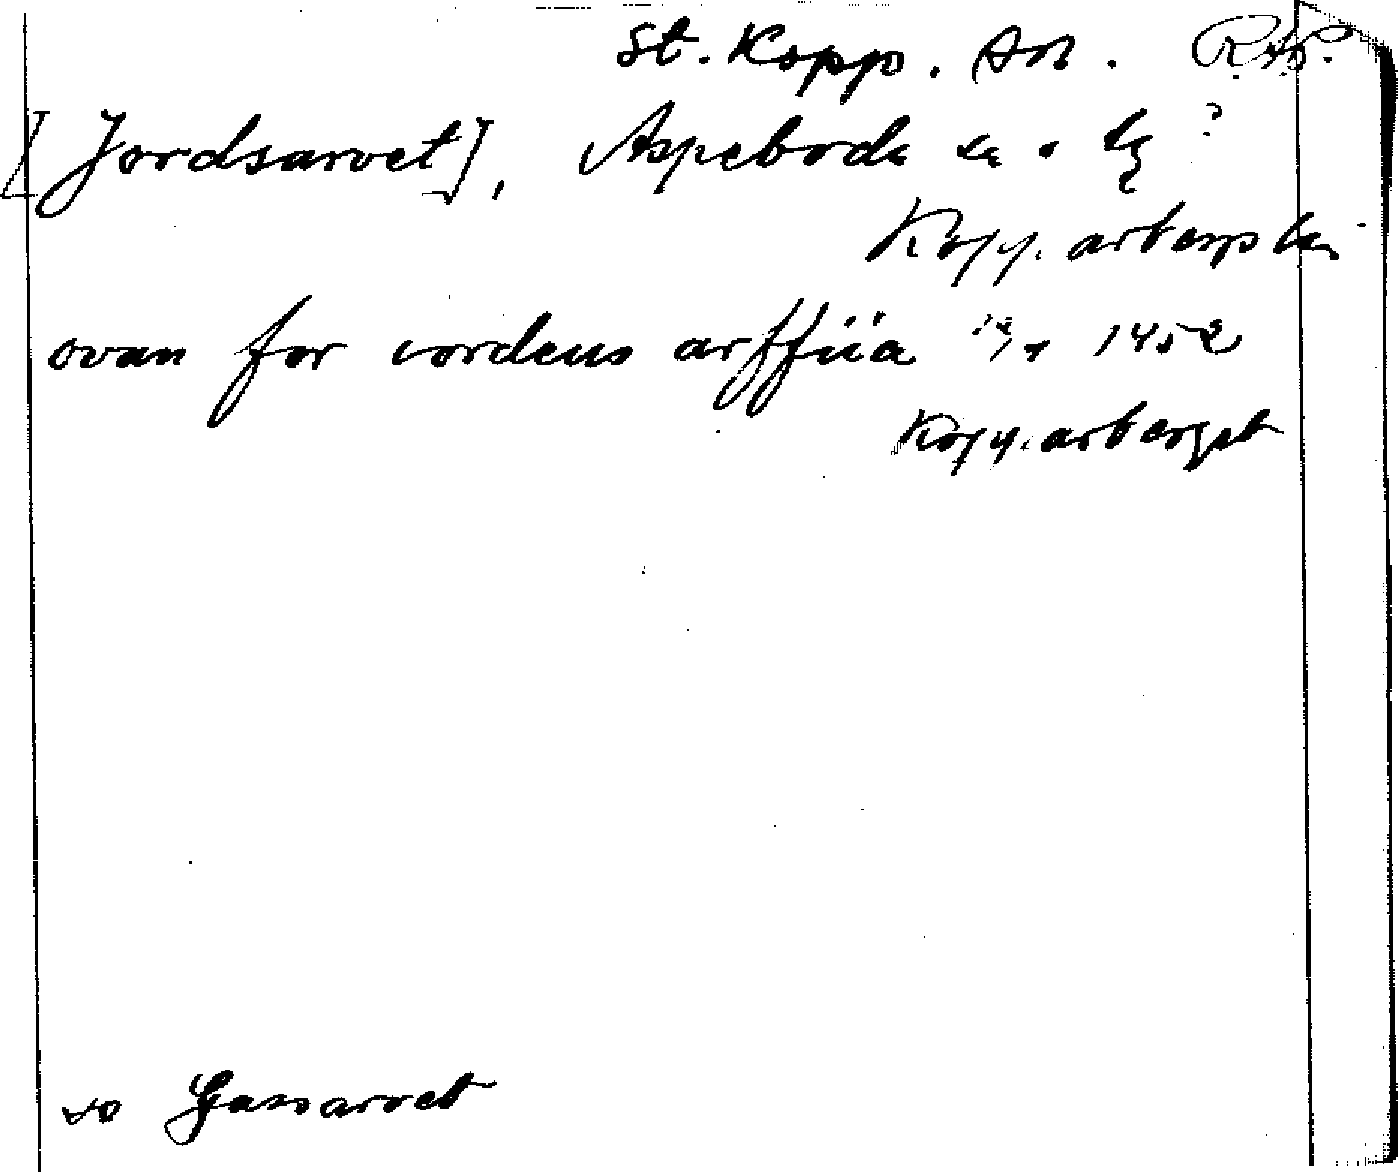 St. Kopp. sn.
[Jordsarvet], Aspeboda sn ?
Kopparbergs län
ovan for iordens arffüa 1452
Kopparberget
so Gassarvet